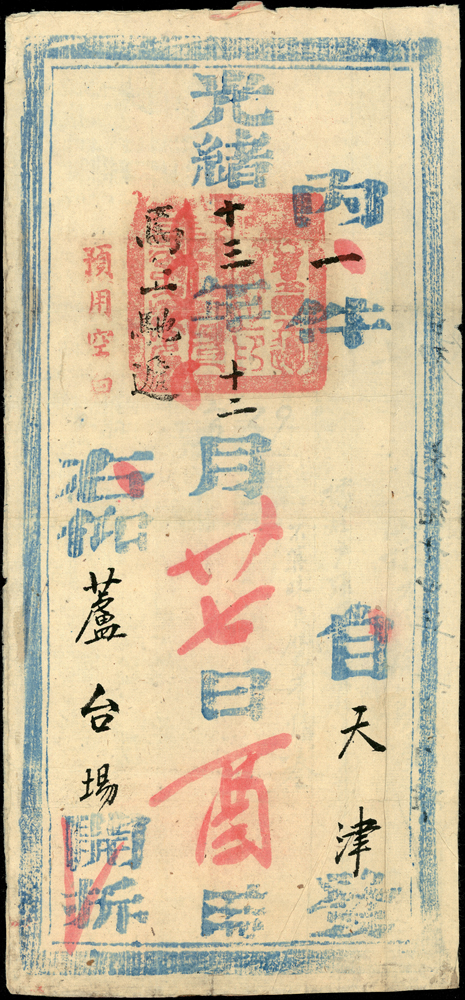 內一件
自天津發
光緒十三年十二月廿七日酉時
馬上馳遞
預用空白
右仰蘆台場開拆